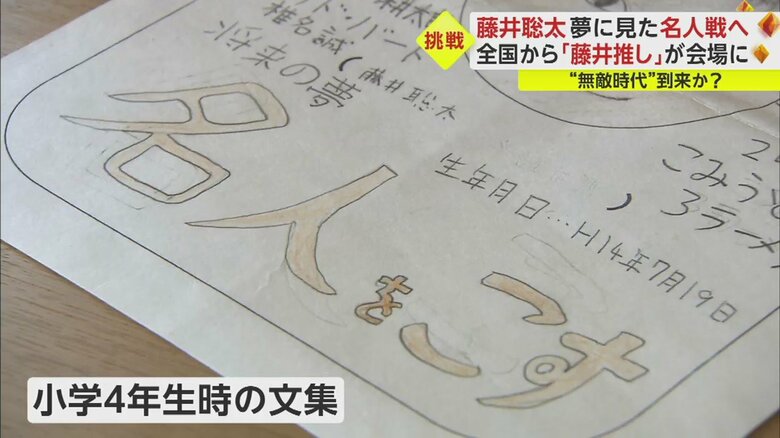 藤井聡太 夢に見た名人戦へ
全国から「藤井推し」が会場に
挑戦
“無敵時代”到来か?
ド・バード
椎名誠
藤井聡太
将来の夢
名人をこす
生年月日…H14年7月19日
こみう
ラーメ
小学4年生時の文集